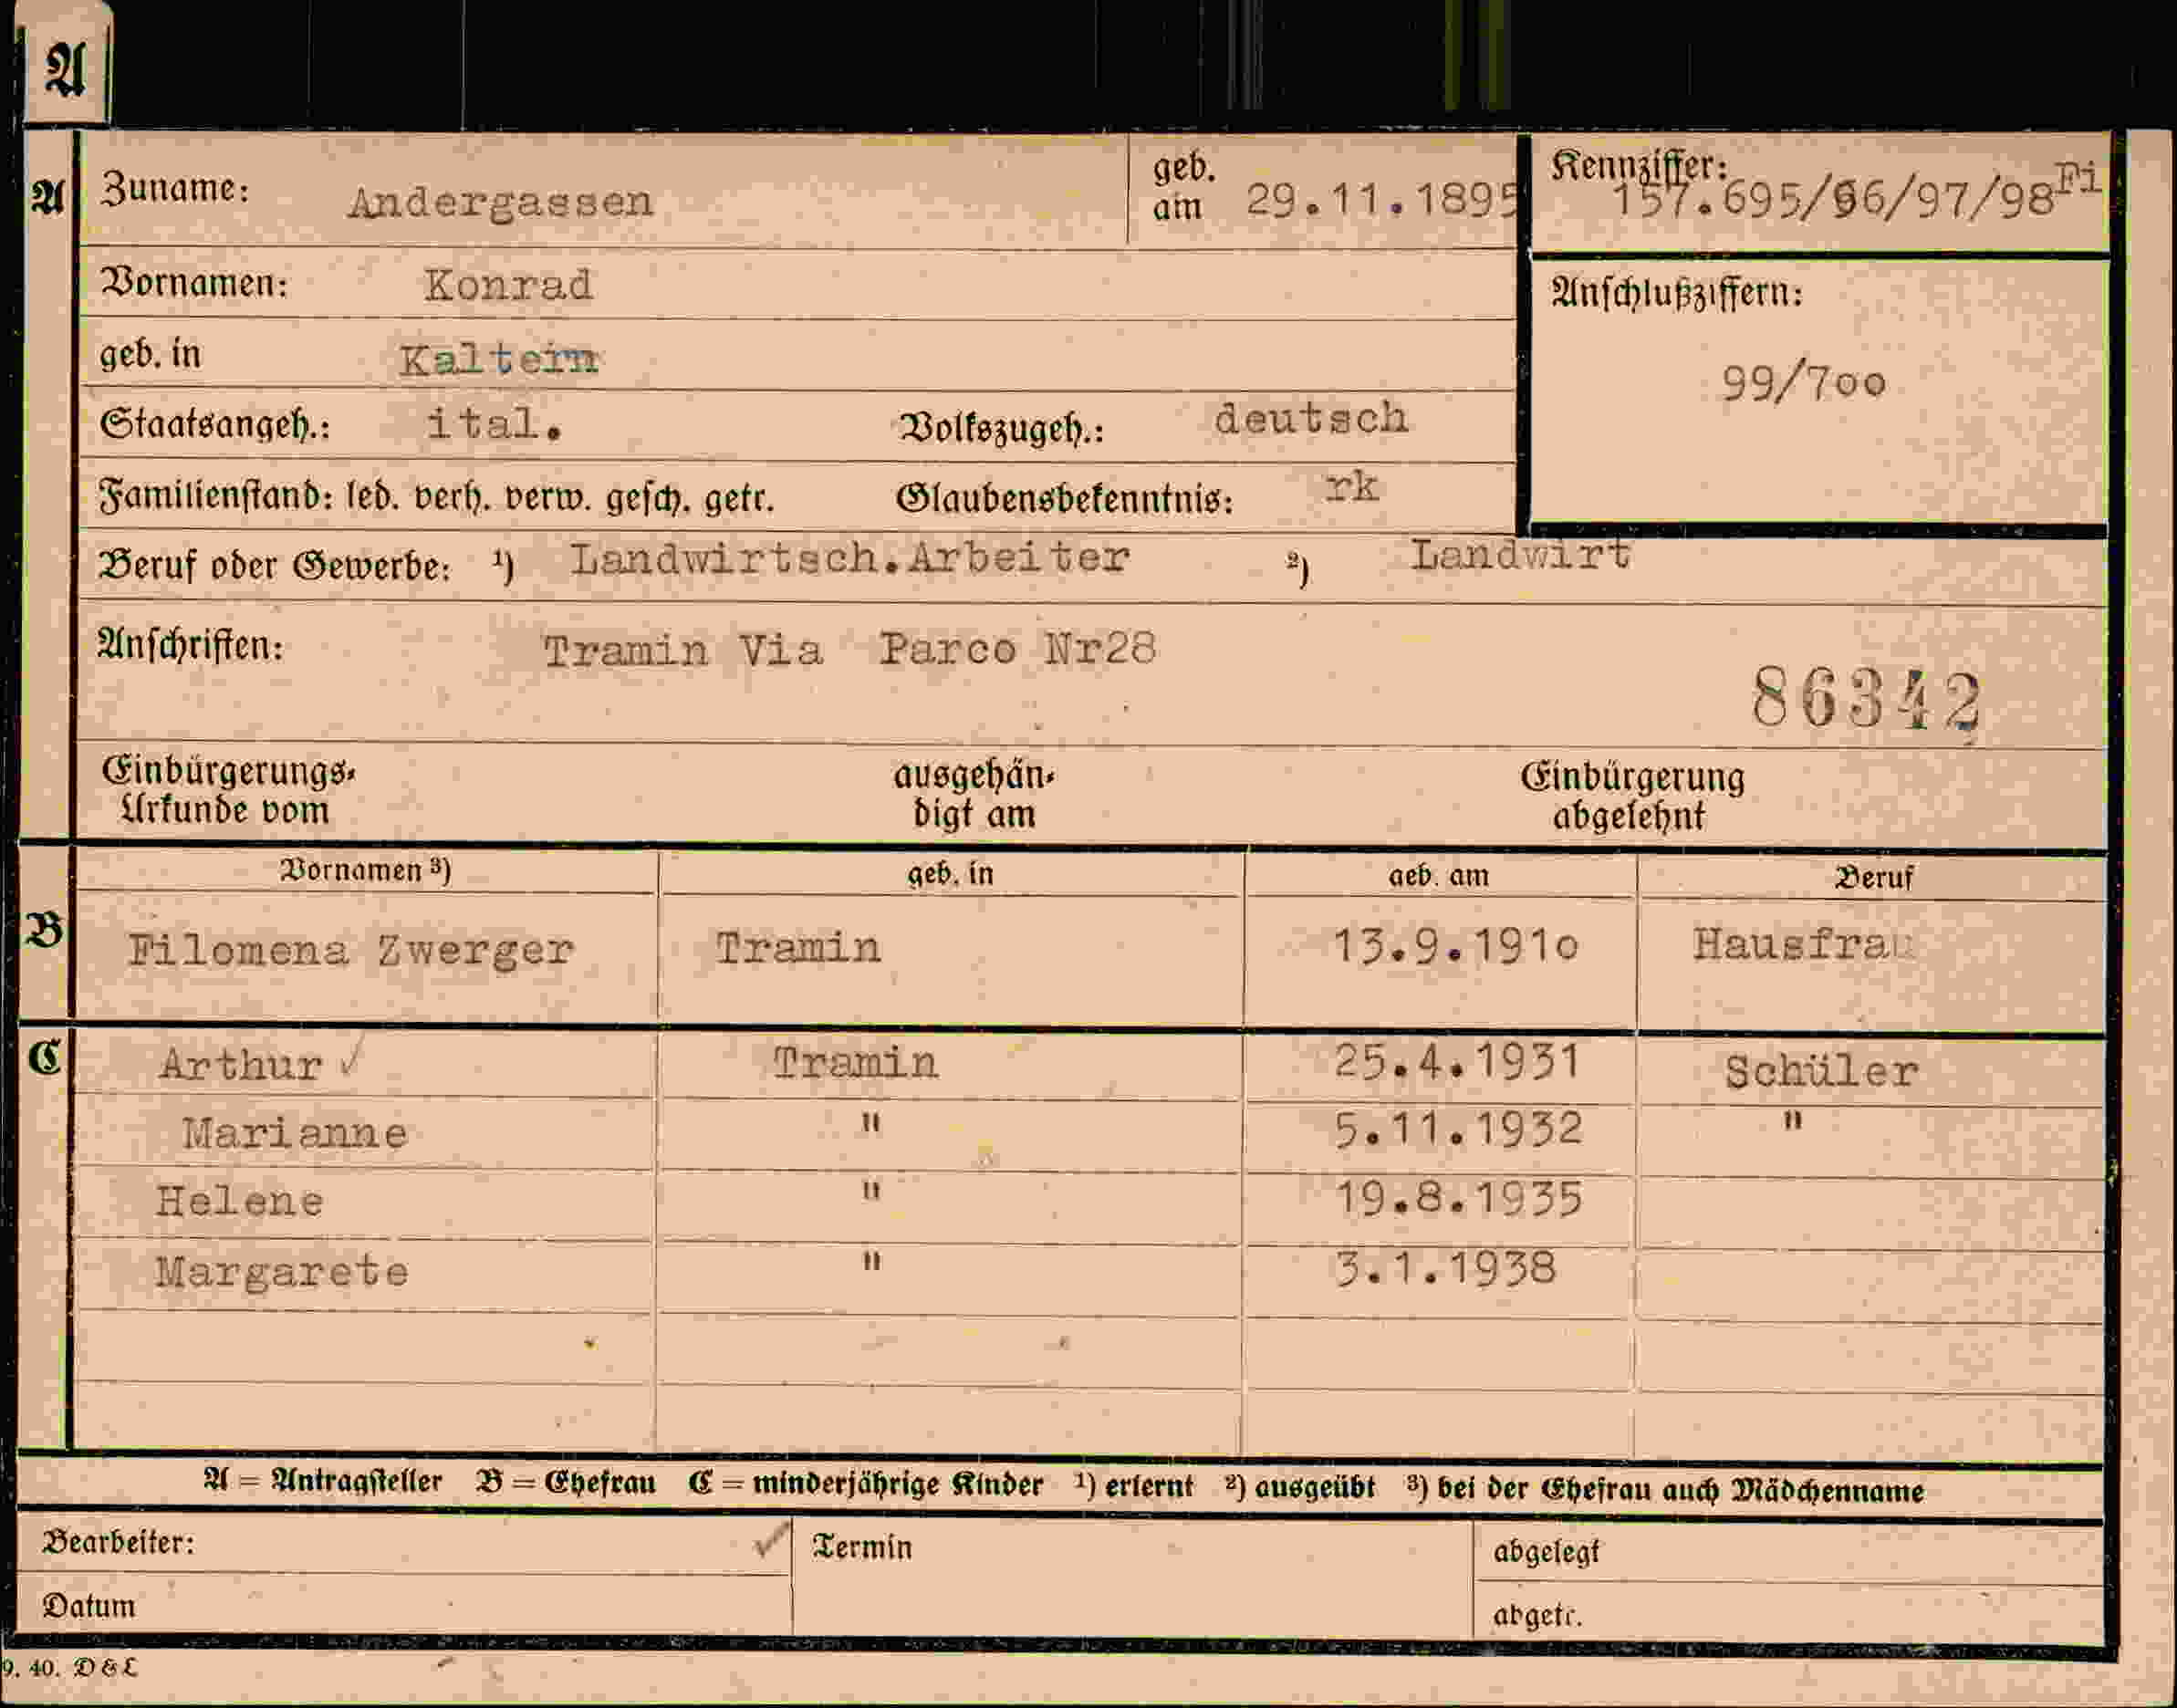 A
A Zuname: Andergassen geb. am 29.11.1895 Kennziffer: 157.695/96/97/98 Fi
Vornamen: Konrad
Anschlußziffern:
geb. in Kaltern
99/7oo
Staatsangeh.: ital. Volkszugeh.: deutsch
Familienstand: led. verh. verw. gesch. getr. Glaubensbekenntnis: rk
Beruf oder Gewerbe: ¹) Landwirtsch.Arbeiter ²) Landwirt
Anschriften: Tramin Via Parco Nr28
86342
Einbürgerungs- ausgehän- Einbürgerung
Urkunde vom digt am abgelehnt
Vornamen ³) geb. in geb. am Beruf
B Filomena Zwerger Tramin 13.9.191o Hausfrau
C Arthur ✓ Tramin 25.4.1931 Schüler
Marianne " 5.11.1932 "
Helene " 19.8.1935
Margarete " 3.1.1938
A = Antragsteller B = Ehefrau C = minderjährige Kinder ¹) erlernt ²) ausgeübt ³) bei der Ehefrau auch Mädchenname
Bearbeiter: ✓ Termin abgelegt
Datum abgetr.
9. 40. D & L